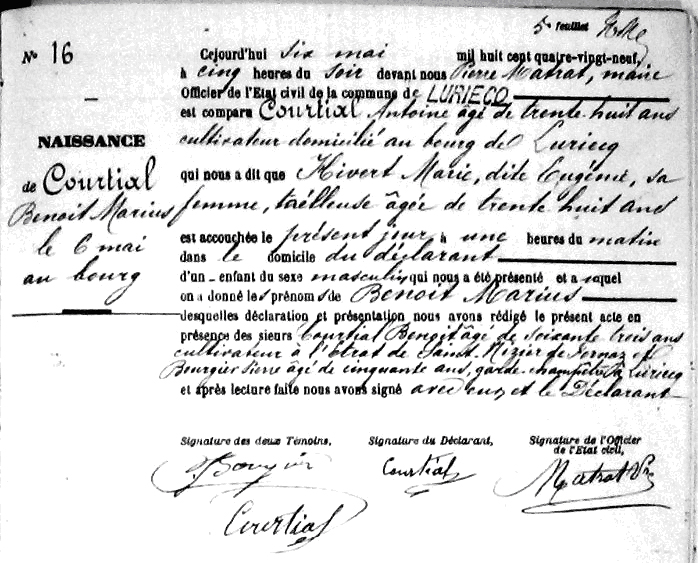 5e feuillet
No 16
Cejourd'hui six mai mil huit cent quatre-vingt-neuf,
à cinq heures du soir devant nous Pierre Matrat, maire
Officier de l'Etat civil de la commune de LURIECQ
est comparu Courtial Antoine âgé de trente huit ans
cultivateur domicilié au bourg de Luriecq
NAISSANCE
de Courtial
Benoit Marius
le 6 mai
au bourg
qui nous a dit que Hivert Marie, dite Eugénie, sa
femme, tailleuse âgée de trente huit ans
est accouchée le présent jour à une heures du matin
dans le domicile du déclarant
d'un enfant du sexe masculin qui nous a été présenté et auquel
on a donné les prénoms de Benoit Marius
desquelles déclaration et présentation nous avons rédigé le présent acte en
présence des sieurs Courtial Benoit âgé de soixante trois ans
cultivateur à l'Etrat de Saint Nizier de Fornas et
Bourgier Pierre âgé de cinquante ans, garde champêtre à Luriecq
et après lecture faite nous avons signé avec eux et le Déclarant
Signature des deux Témoins, Signature du Déclarant, Signature de l'Officier
de l'Etat civil,
Bourgier Courtial Matrat
Courtial